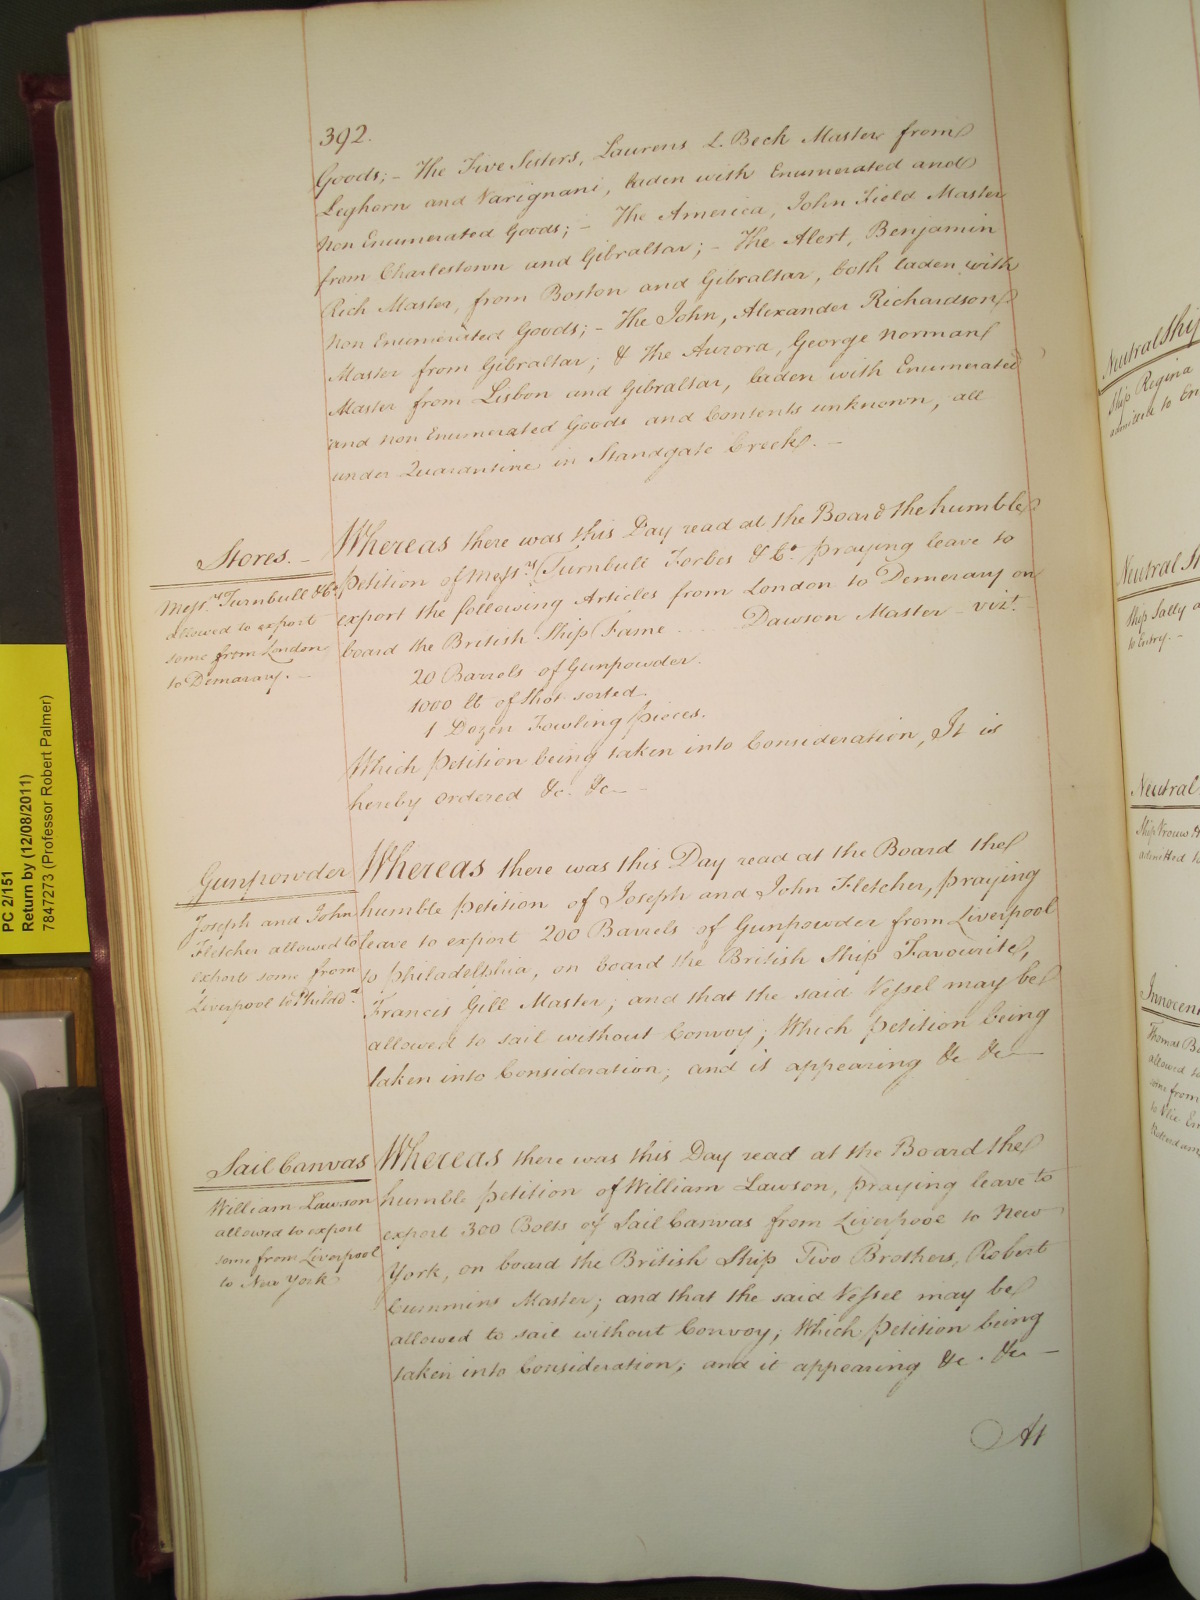 392.
Goods; – The Five Sisters, Laurens L. Beck Master from
Leghorn and Navignani, laden with Enumerated and
Non Enumerated Goods; – The America, John Field Master
from Charlestown and Gibraltar; – The Alert, Benjamin
Rich Master, from Boston and Gibraltar, both laden with
Non Enumerated Goods; – The John, Alexander Richardson
Master from Gibraltar; & The Aurora, George Norman
Master from Lisbon and Gibraltar, laden with Enumerated
and Non Enumerated Goods and Contents unknown, all
under Quarantine in Standgate Creek. –
Stores. –
Messrs. Turnbull &Co.
allowed to export
some from London
to Demarary. –
Whereas there was this Day read at the Board the humble
Petition of Messrs. Turnbull Forbes & Co. praying leave to
export the following Articles from London to Demerary on
board the British Ship Fame ..... Dawson Master – vizt.
20 Barrels of Gunpowder.
1000 lb of Shot sorted.
1 Dozen Fowling pieces.
Which Petition being taken into Consideration, It is
hereby Ordered &c. &c –
Gunpowder
Joseph and John
Fletcher allowed to
export some from
Liverpool to Philada.
Whereas there was this Day read at the Board the
humble Petition of Joseph and John Fletcher, praying
leave to export 200 Barrels of Gunpowder from Liverpool
to Philadelphia, on board the British Ship Favourite,
Francis Gill Master; and that the said Vessel may be
allowed to sail without Convoy; Which Petition being
taken into Consideration; and it appearing &c &c –
Sail Canvas
William Lawson
allowed to export
some from Liverpool
to New York
Whereas there was this Day read at the Board the
humble Petition of William Lawson, praying leave to
export 300 Bolts of Sail Canvas from Liverpool to New
York, on board the British Ship Two Brothers, Robert
Cummins Master; and that the said Vessel may be
allowed to sail without Convoy; Which Petition being
taken into Consideration; and it appearing &c. &c –
At
PC 2/151
Return by (12/08/2011)
7847273 (Professor Robert Palmer)
Neutral Ship
Ship Regina
admitted to En
Neutral S
Ship Sally a
to Entry. –
Neutral
Ship Vrouw
admitted t
Innocen
Thomas B
allowed to
some from